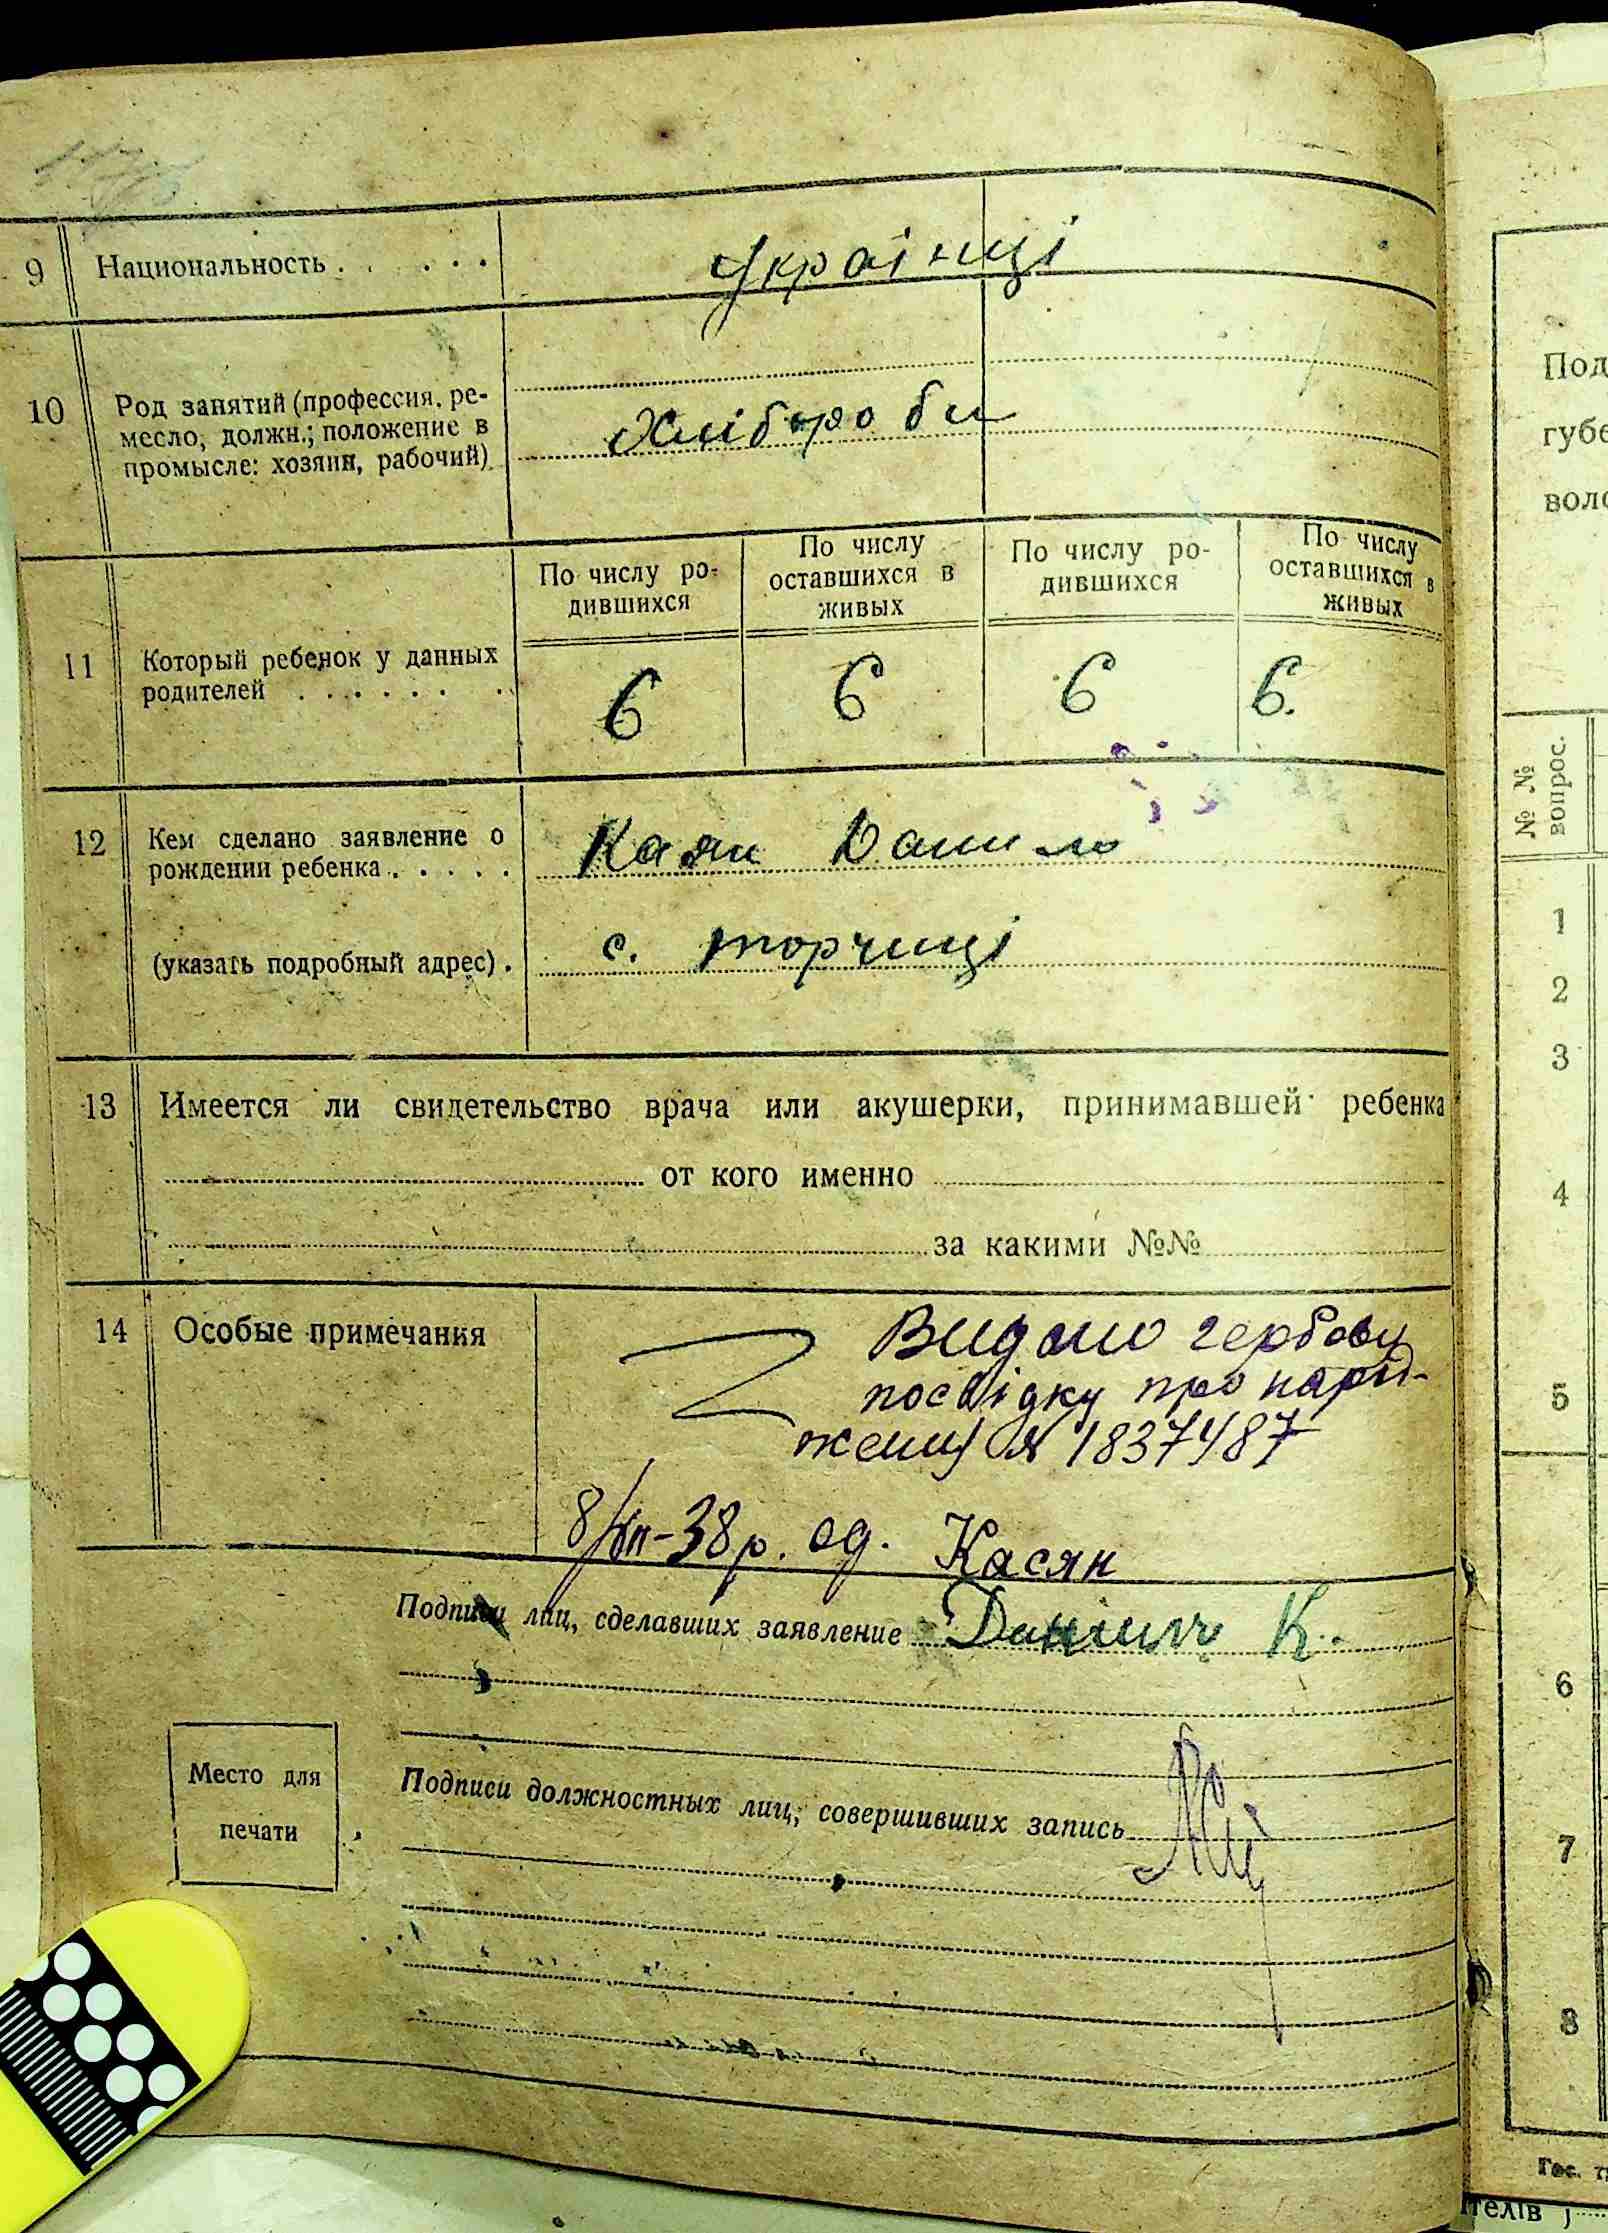 9 Национальность . . . . . Українці
10 Род занятий (профессия, ре-
месло, должн.; положение в
промысле: хозяин, рабочий)
Хлібороби
По числу ро-
дившихся
По числу
оставшихся в
живых
По числу ро-
дившихся
По числу
оставшихся в
живых
11 Который ребенок у данных
родителей . . . . . . .
6 6 6 6.
12 Кем сделано заявление о
рождении ребенка . . . . .
Данило
(указать подробный адрес) . с. торчиці
13 Имеется ли свидетельство врача или акушерки, принимавшей ребенка
от кого именно
за какими №№
14 Особые примечания
Видано гербову
посвідку про народ-
жения № 1837487
38 р. од. Касян
Подписи лиц, сделавших заявление К.
Место для
печати
Подписи должностных лиц, совершивших запись
Под
губе
воло
№ №
вопрос.
1
2
3
4
5
6
7
8
Гос. т
ителів